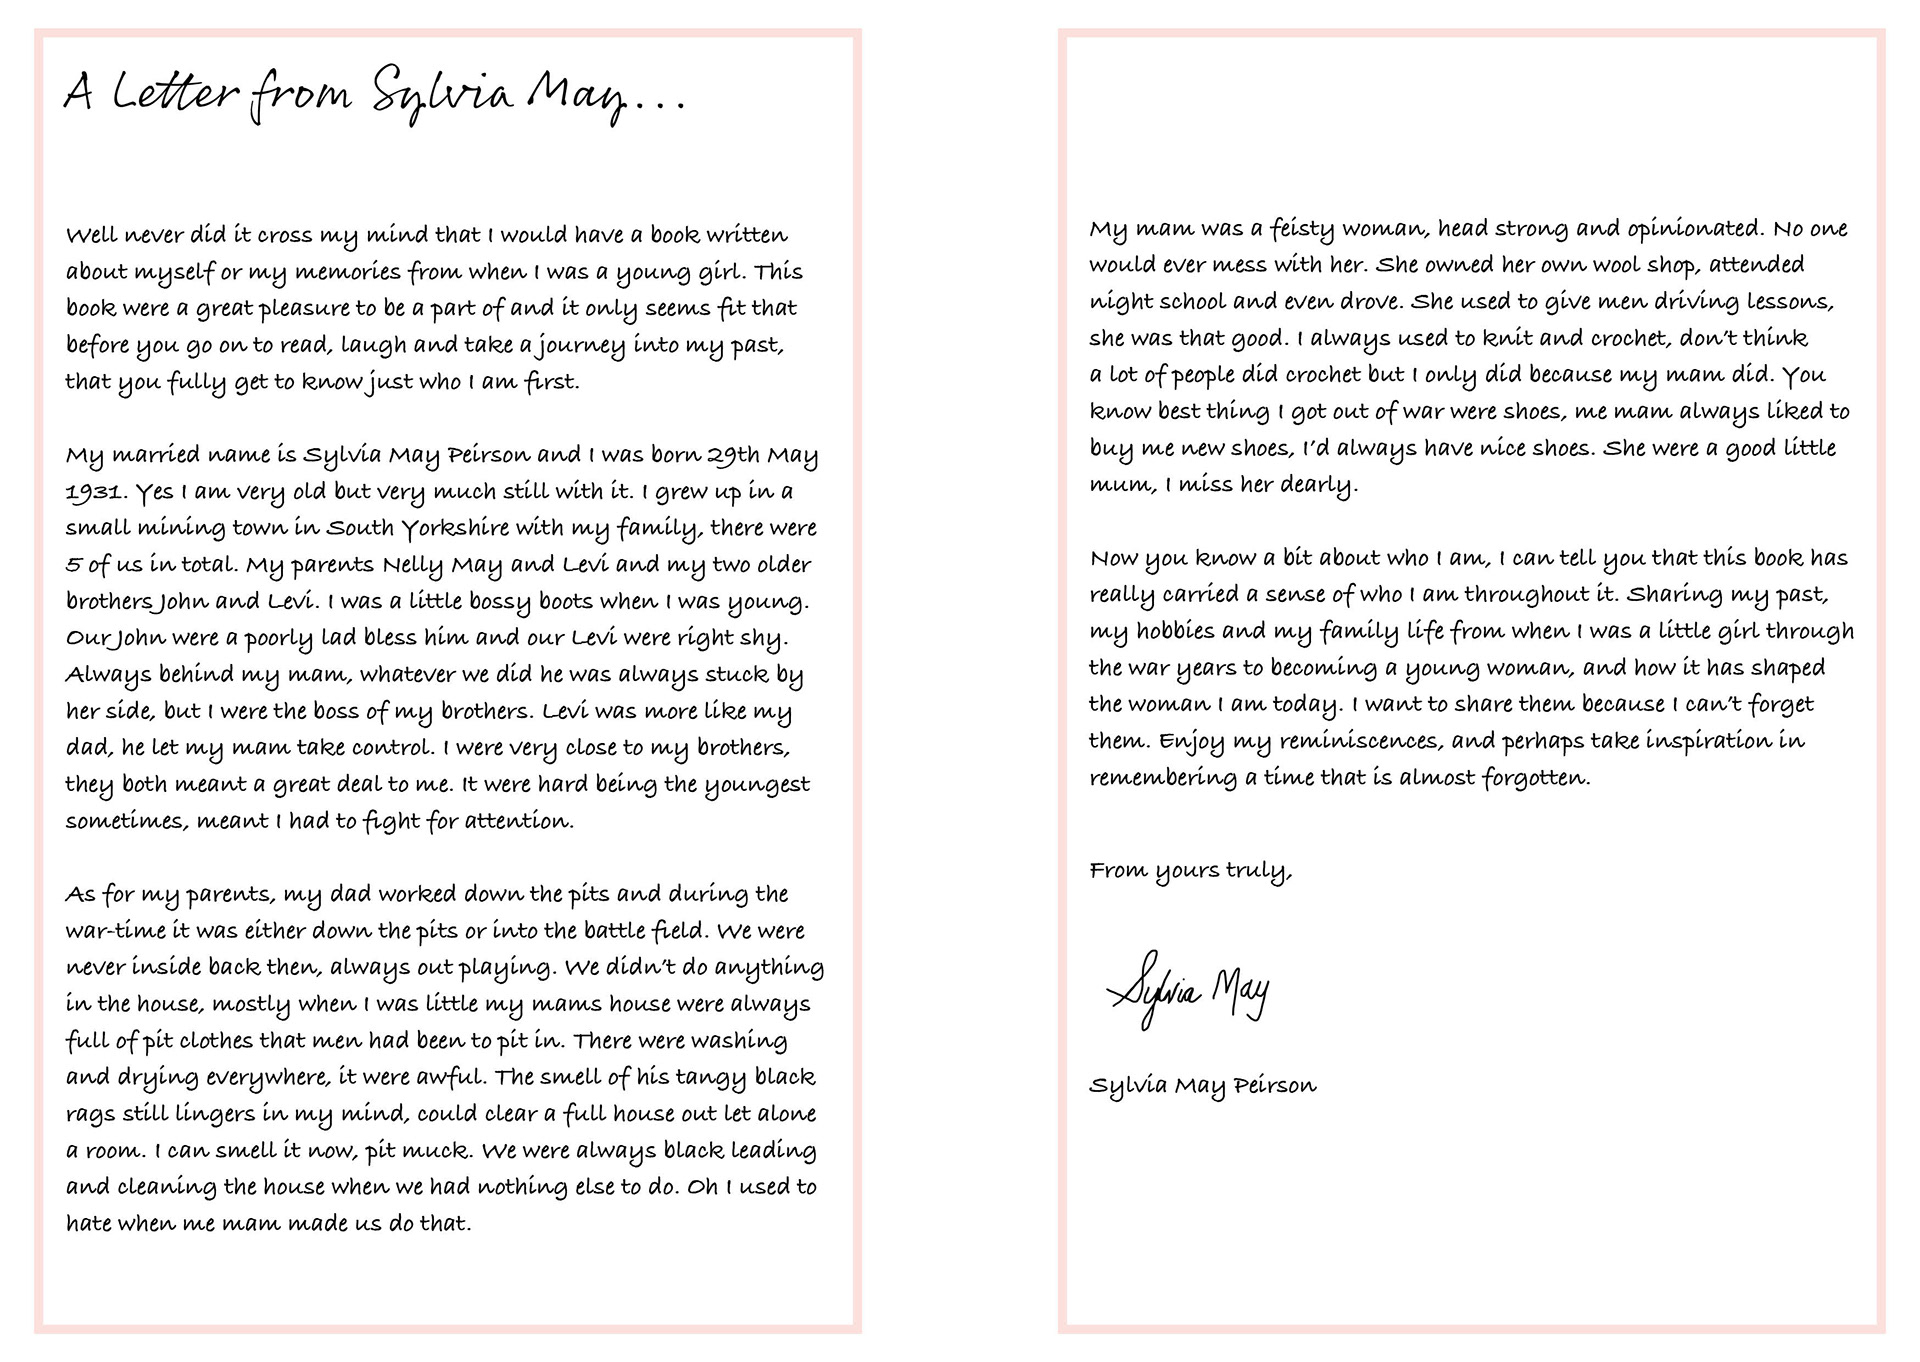 A Letter from Sylvia May...
Well never did it cross my mind that I would have a book written
about myself or my memories from when I was a young girl. This
book were a great pleasure to be a part of and it only seems fit that
before you go on to read, laugh and take a journey into my past,
that you fully get to know just who I am first.
My married name is Sylvia May Peirson and I was born 29th May
1931. Yes I am very old but very much still with it. I grew up in a
small mining town in South Yorkshire with my family, there were
5 of us in total. My parents Nelly May and Levi and my two older
brothers John and Levi. I was a little bossy boots when I was young.
Our John were a poorly lad bless him and our Levi were right shy.
Always behind my mam, whatever we did he was always stuck by
her side, but I were the boss of my brothers. Levi was more like my
dad, he let my mam take control. I were very close to my brothers,
they both meant a great deal to me. It were hard being the youngest
sometimes, meant I had to fight for attention.
As for my parents, my dad worked down the pits and during the
war-time it was either down the pits or into the battle field. We were
never inside back then, always out playing. We didn't do anything
in the house, mostly when I was little my mams house were always
full of pit clothes that men had been to pit in. There were washing
and drying everywhere, it were awful. The smell of his tangy black
rags still lingers in my mind, could clear a full house out let alone
a room. I can smell it now, pit muck. We were always black leading
and cleaning the house when we had nothing else to do. Oh I used to
hate when me mam made us do that.
My mam was a feisty woman, head strong and opinionated. No one
would ever mess with her. She owned her own wool shop, attended
night school and even drove. She used to give men driving lessons,
she was that good. I always used to knit and crochet, don't think
a lot of people did crochet but I only did because my mam did. You
know best thing I got out of war were shoes, me mam always liked to
buy me new shoes, I'd always have nice shoes. She were a good little
mum, I miss her dearly.
Now you know a bit about who I am, I can tell you that this book has
really carried a sense of who I am throughout it. Sharing my past,
my hobbies and my family life from when I was a little girl through
the war years to becoming a young woman, and how it has shaped
the woman I am today. I want to share them because I can't forget
them. Enjoy my reminiscences, and perhaps take inspiration in
remembering a time that is almost forgotten.
From yours truly,
Sylvia May
Sylvia May Peirson